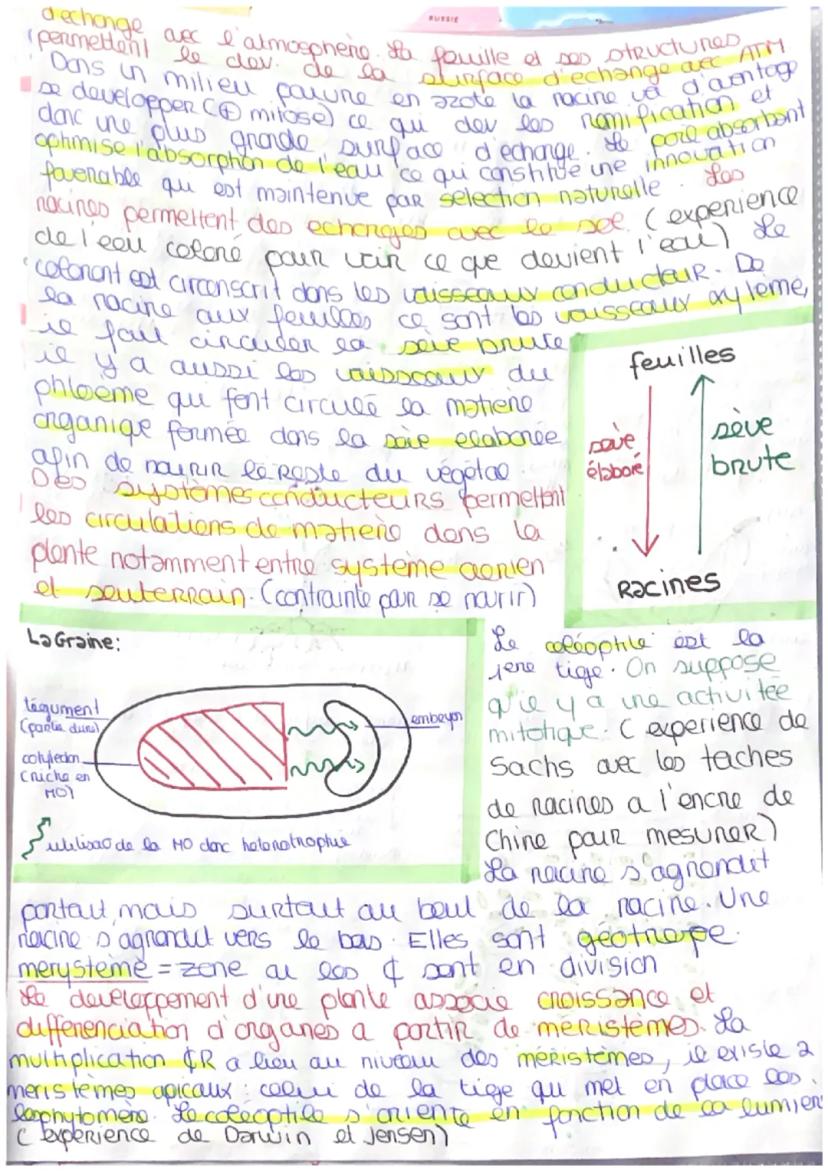 RUSSIE
d'echange avec l'atmosphère. La feuille et ses structures
permettent le dev. de la surface d'echange avec ATM
Dans un milieu pauvre en azote la racine va d'avantage
se developper (⊕ mitose) ce qui dev les ramification et
donc une plus grande surface d'echange. Le poil absorbant
optimise l'absorption de l'eau ce qui constitue une innovation
favorable qui est maintenue par selection naturelle. Les
racines permettent des echanges avec le sol. (experience
de l'eau coloré pour voir ce que devient l'eau) Le
colorant est circonscrit dans les vaisseaux conducteur. De
la racine aux feuilles ce sont les vaisseaux xylème,
il fait circuler la seve brute
il y a aussi les vaisseaux du
phloeme qui font circulé la matiere
organique formée dans la seve elaborée
afin de nourir le reste du végétal.
Des systèmes conducteurs permettent
les circulations de matiere dans la
plante notamment entre systeme aerien
et souterrain. (contrainte pour se nourir)
feuilles
seve
élaboré
sève
brute
Racines
La Graine:
tégument
(partie dure)
cotyledon
(riche en
MO)
embryon
utilisao de la MO donc heterotrophie
Le coléoptile est la
1ere tige. On suppose
qu'il y a une activitée
mitotique. (experience de
Sachs avec les taches
de racines a l'encre de
Chine pour mesurer)
La racine s'agrandit
partout, mais surtout au bout de la racine. Une
racine s'agrandit vers le bas. Elles sont géotrope.
merysteme = zone ou les ¢ sont en division
Le developpement d'une plante associe croissance et
differenciation d'organes a partir de meristèmes. La
multiplication ¢R a lieu au niveau des méristèmes, il existe 2
meristèmes apicaux : celui de la tige qui met en place les
phytomere. Le coleoptile s'oriente en fonction de la lumiere
(experience de Darwin et Jensen)